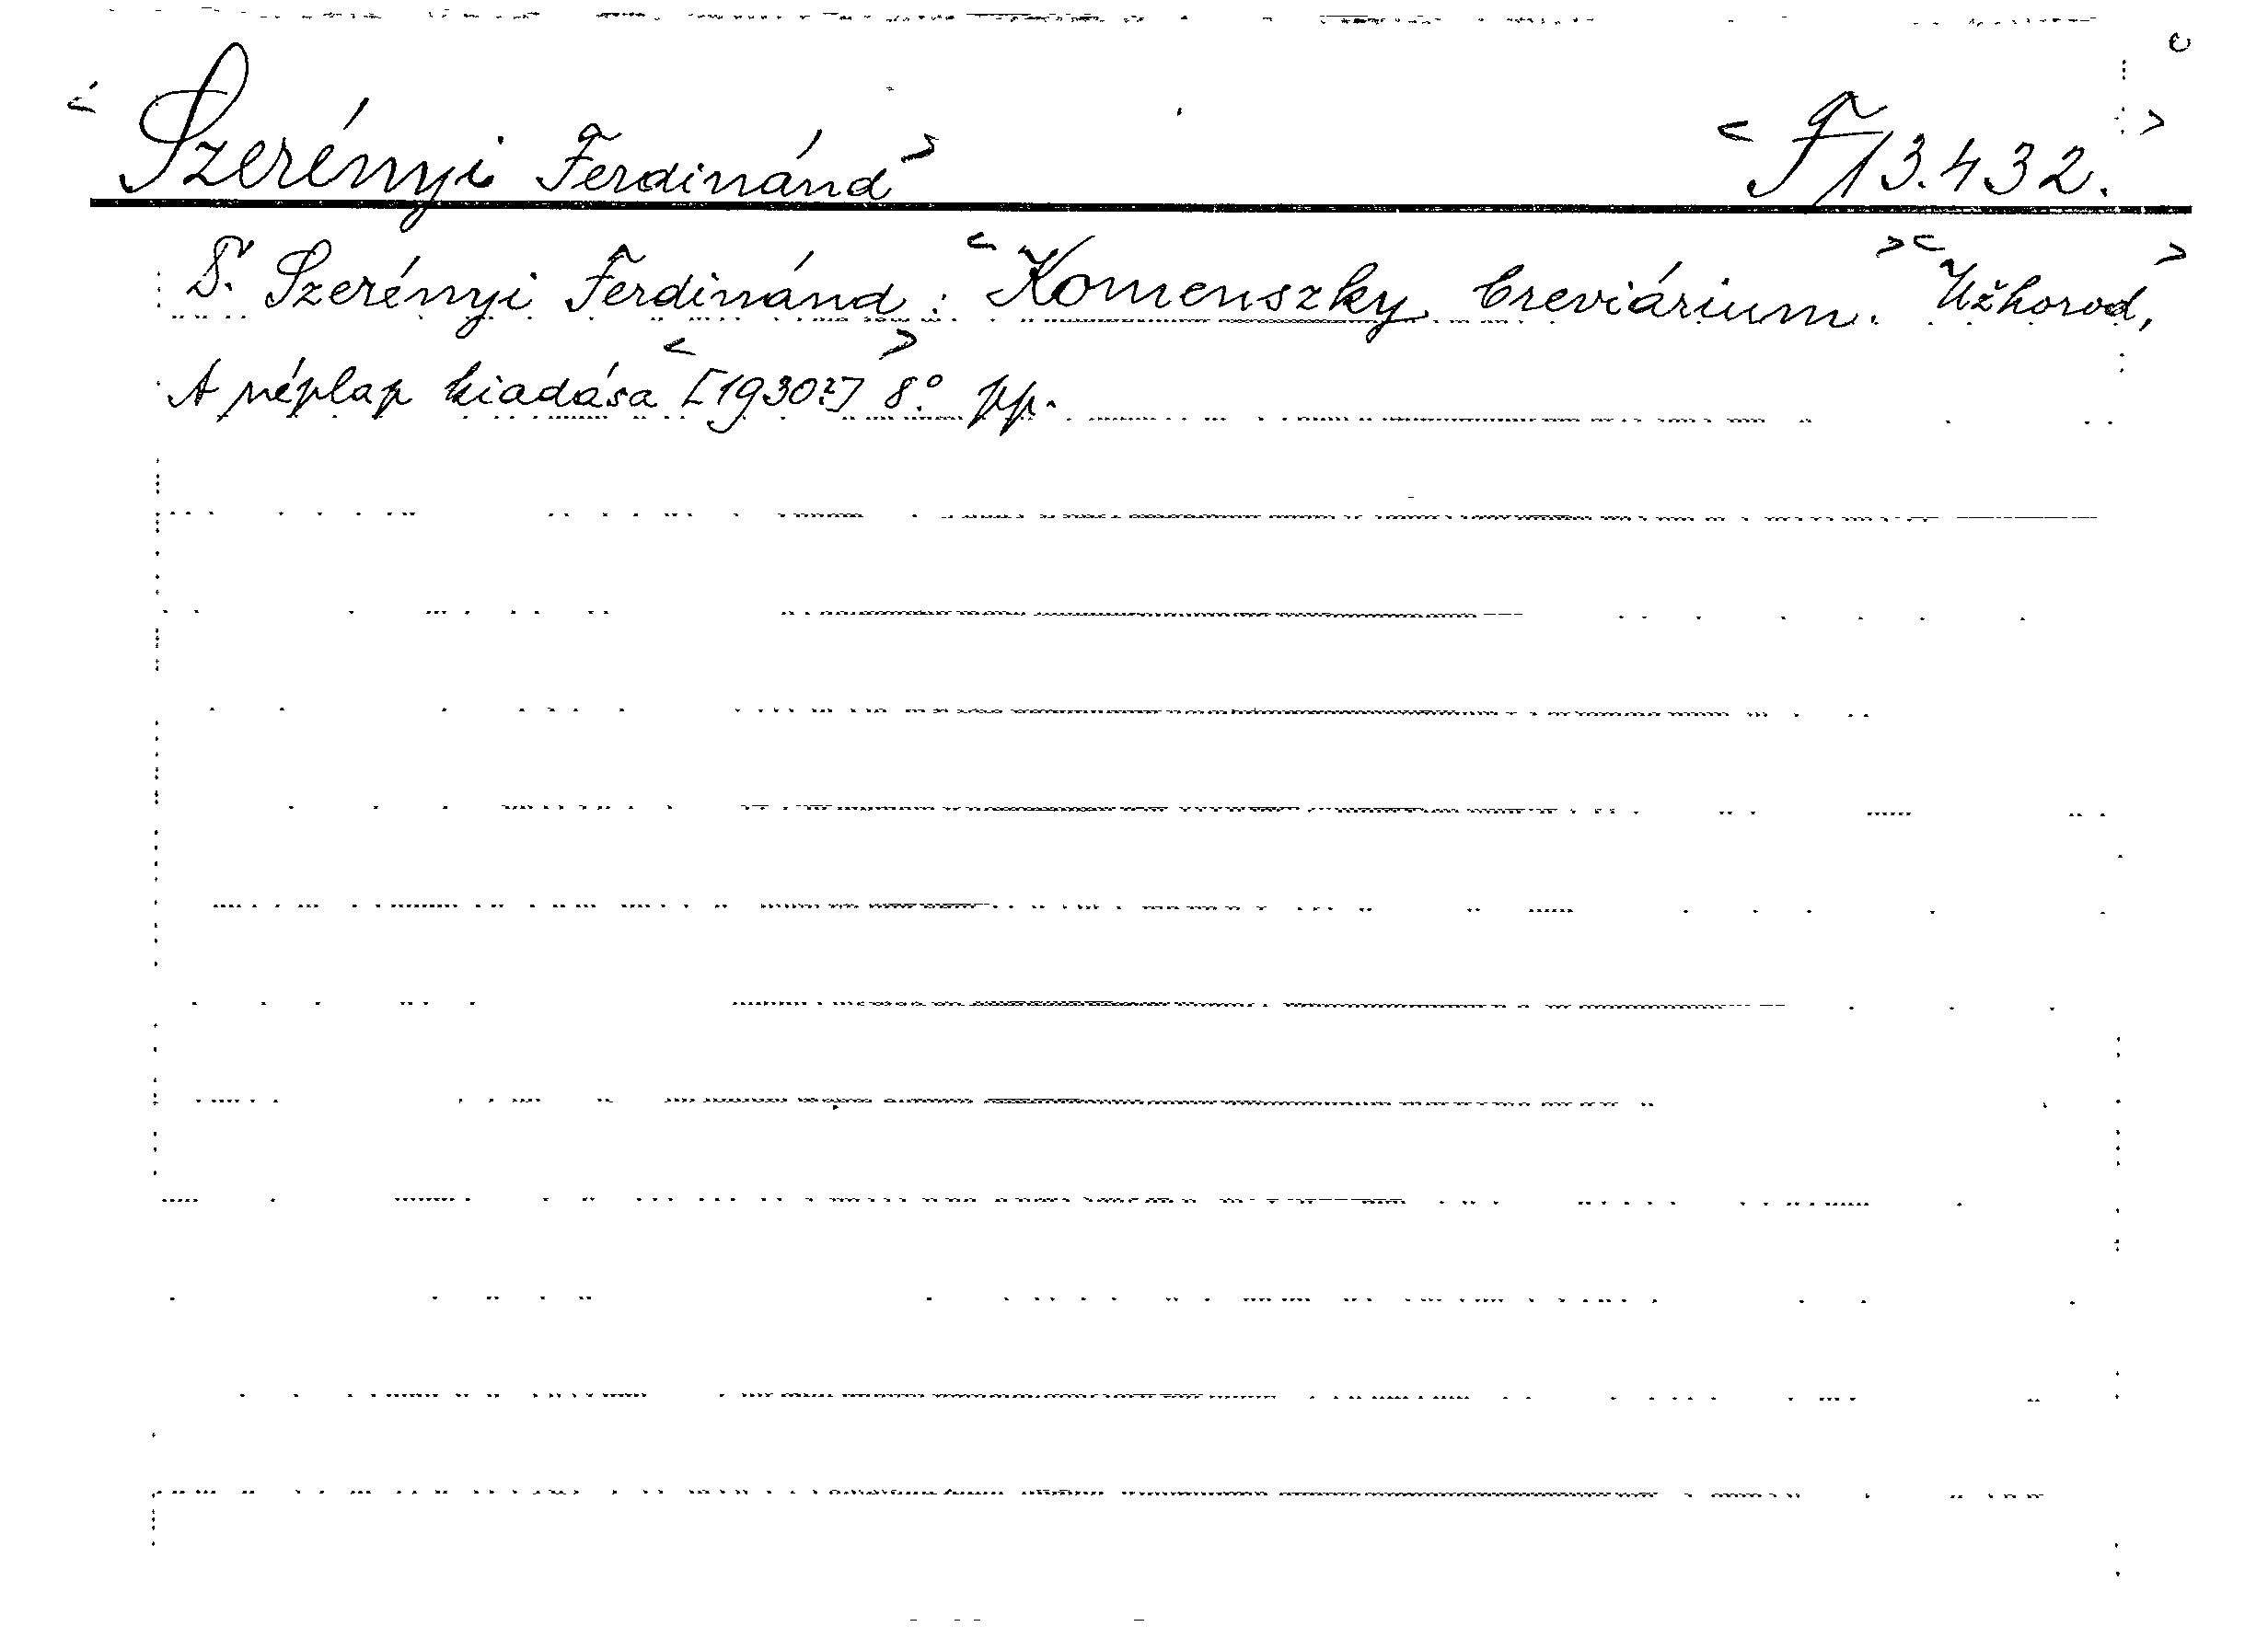 <Szerényi Ferdinánd> <F/13.432.>
Szerényi Ferdinánd: <Komenszky breviárium.> <Užhorod,>
A néplap kiadása <[1930?]> 8.° pp.